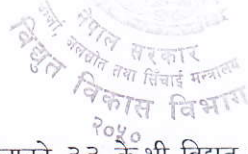 नेपाल सरकार
ऊर्जा, जलस्रोत तथा सिंचाई मन्त्रालय
विद्युत विकास विभाग
२०५०
३३ के.भी विद्युत